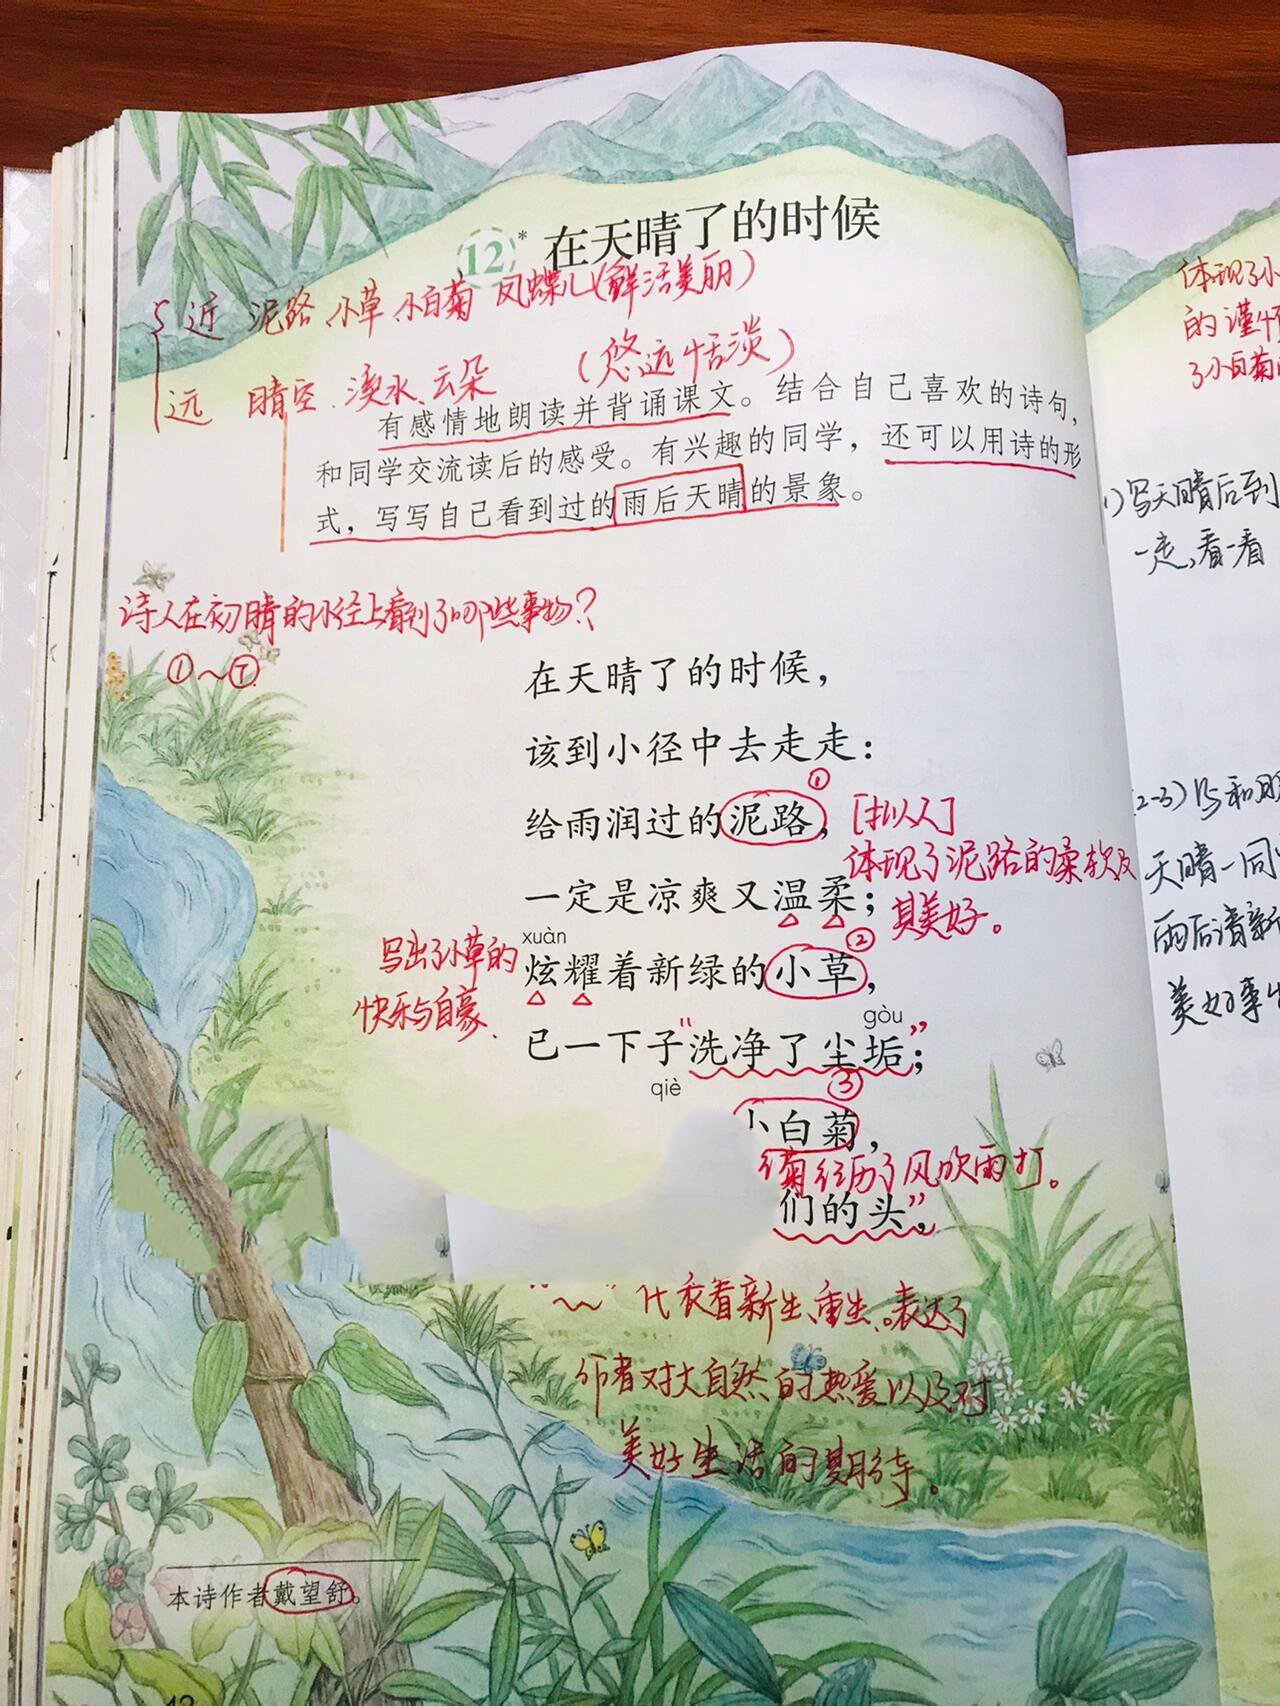 12* 在天晴了的时候
近 泥路、小草、小白菊 凤蝶儿(鲜活美丽)
远 晴空、溪水、云朵 (悠远恬淡)
有感情地朗读并背诵课文。结合自己喜欢的诗句，
和同学交流读后的感受。有兴趣的同学，还可以用诗的形
式，写写自己看到过的雨后天晴的景象。
诗人在初晴的小径上看到了哪些事物?
①～⑦
在天晴了的时候，
该到小径中去走走：
①
给雨润过的泥路，[拟人]
体现了泥路的柔软及
一定是凉爽又温柔；其美好。
xuàn ②
写出了小草的
炫耀着新绿的小草，
快乐与自豪、
gòu
已一下子"洗净了尘垢"；
qiè ③
小白菊，
菊经历了风吹雨打。
们的头"，
代表着新生、重生、表达了
作者对大自然的热爱以及对
美好生活的期待。
本诗作者戴望舒。
体现了小
的谨慎
了小白菊
1)写天晴后到
一走,看一看
(2-3)写和
天晴一同
雨后清新
美好事